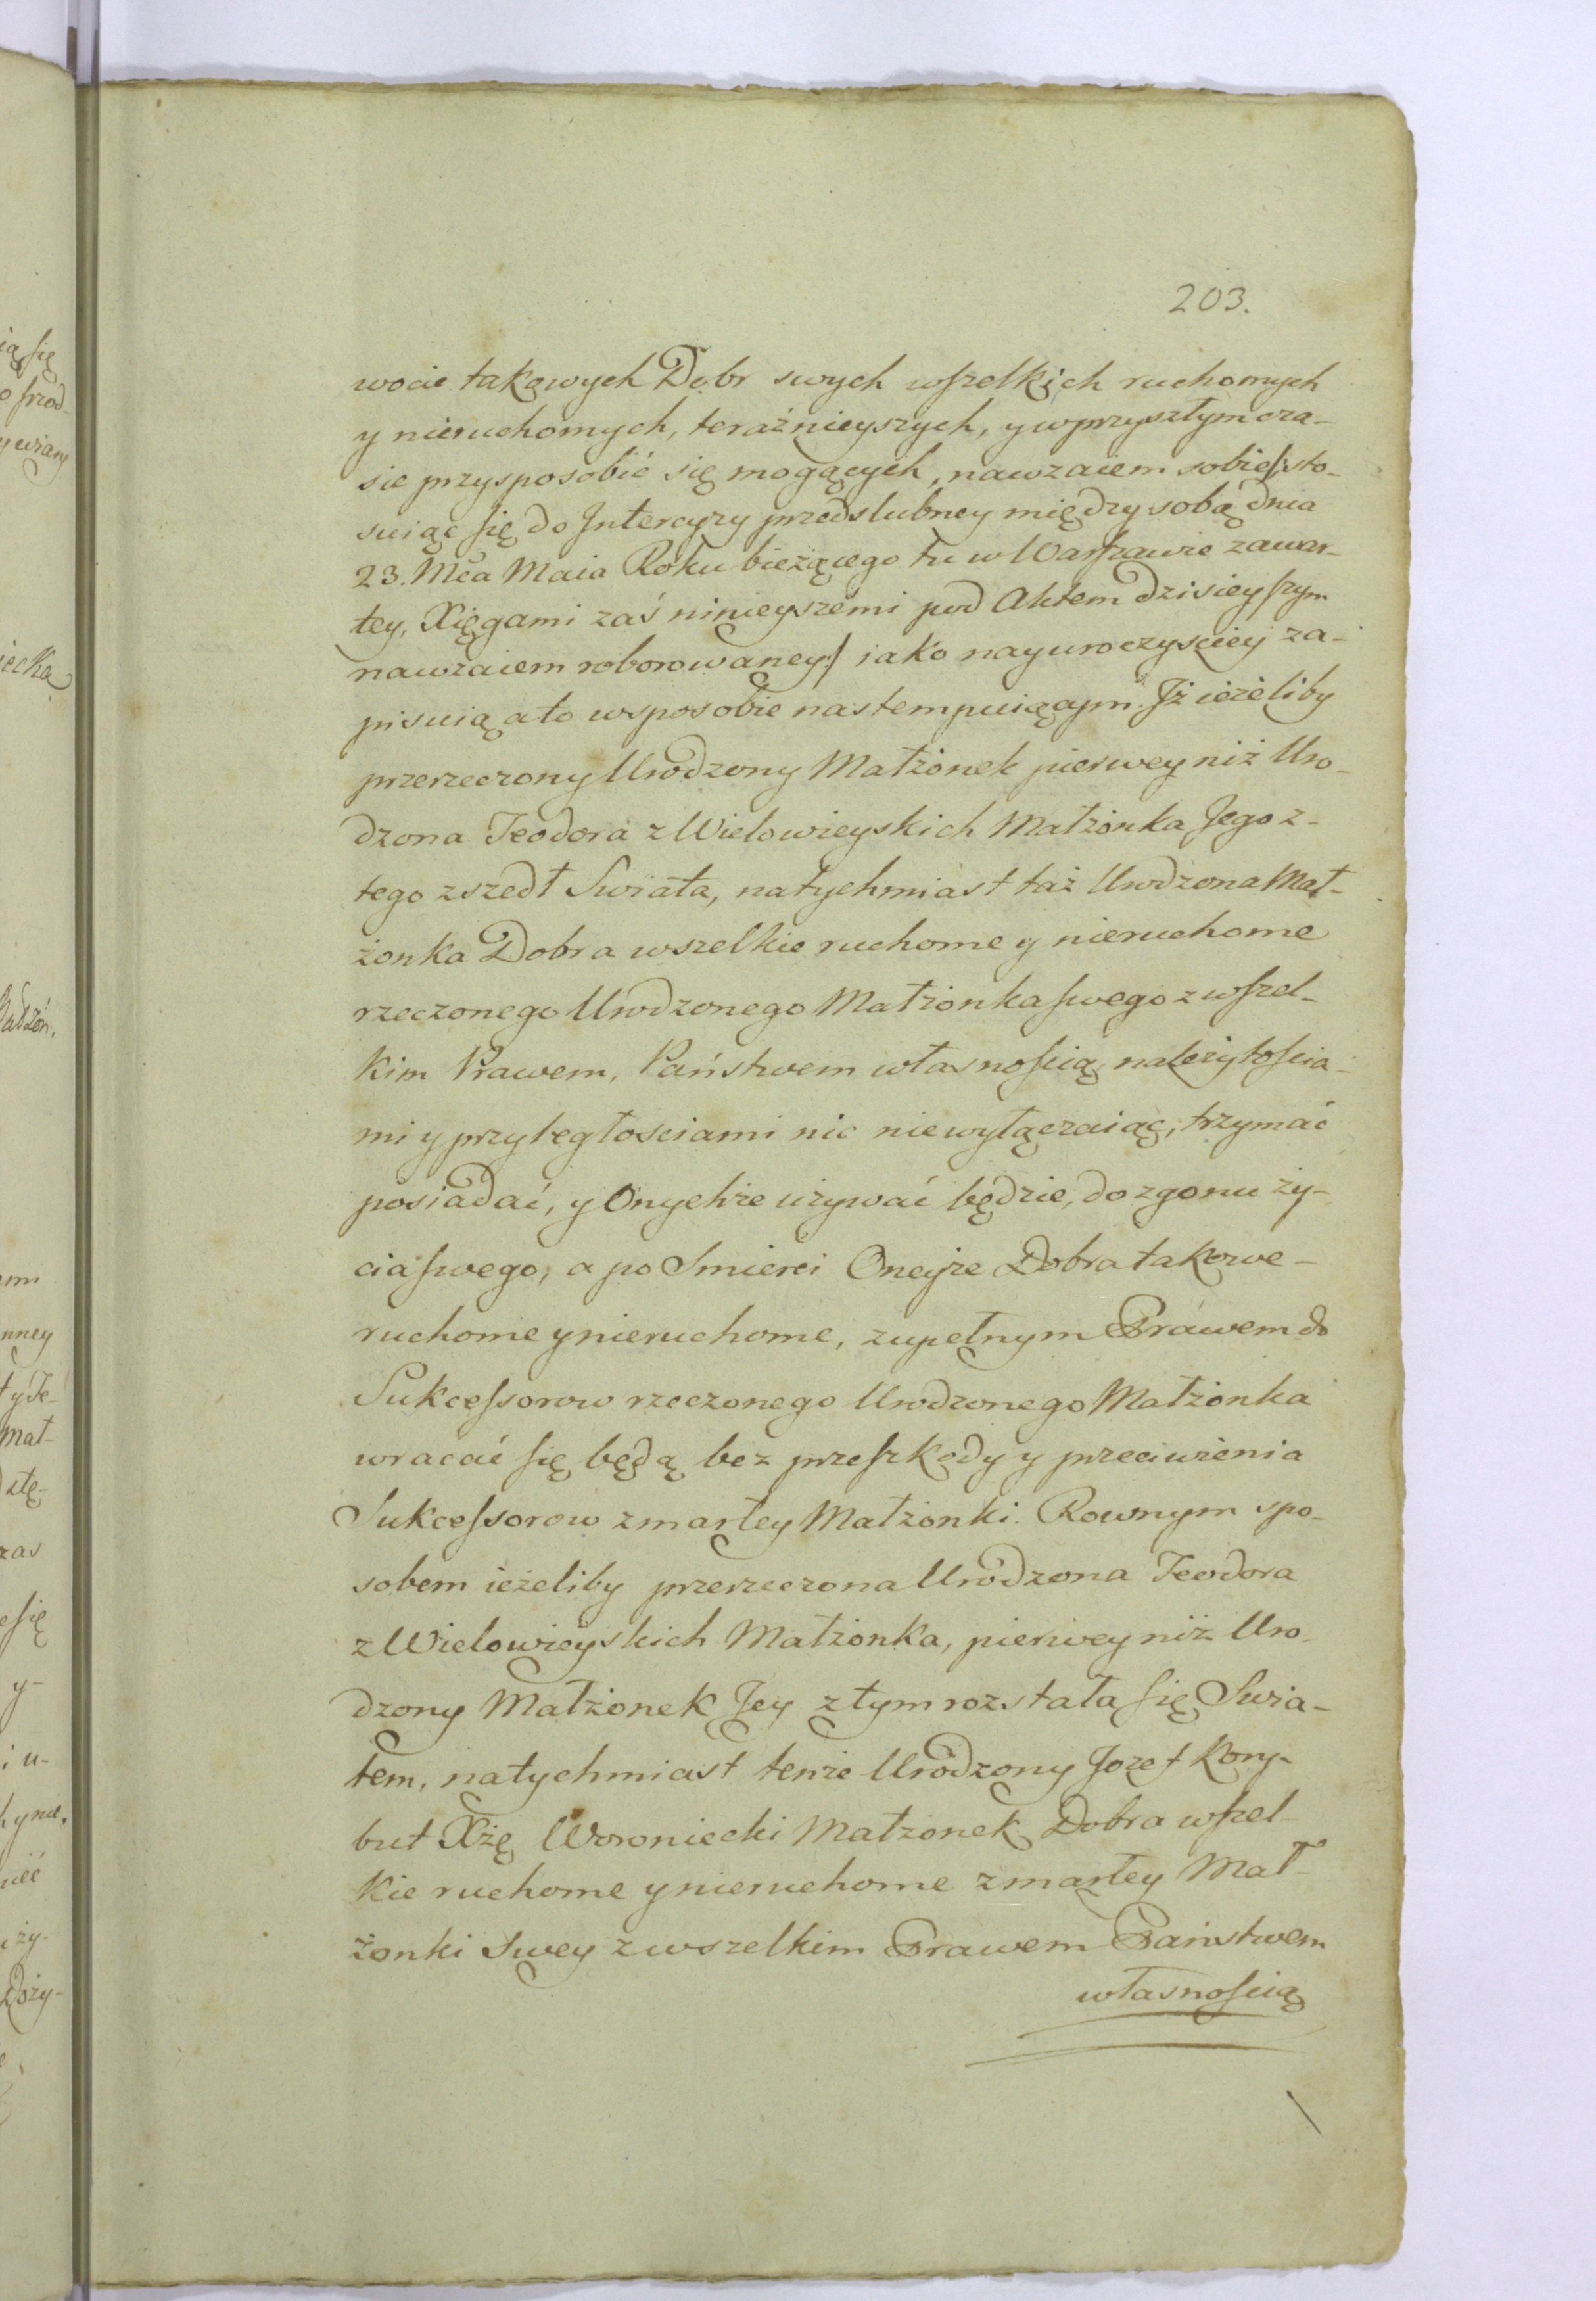 203.
wocie takowych Dobr swych wſzelkich ruchomych
y nieruchomych, teraźnieyszych, y w przyszłym cza-
sie przysposobić się mogących, nawzaiem sobie /:sto-
suiąc ſię do Intercyzy przedslubney między sobą dnia
23. Mca Maia Roku bieżącego tu w Warſzawie zawar-
tey, Xięgami zaś ninieyszemi pod Aktem dzisieyſzym
nawzaiem roborowaney:/ iako nayuroczyściey za-
pisuią a to w sposobie nastempuiącym. Iż ieżeliby
przerzeczony Urodzony Małżonek pierwey niż Uro-
dzona Teodora z Wielowieyskich Małżonka Jego z-
tego zszedł Swiata, natychmiast taż Urodzona Mał-
żonka Dobra wszelkie ruchome y nieruchome
rzeczonego Urodzonego Małżonka ſwego z wſzel-
kim Prawem, Państwem własnoſcią, należytoſcia-
mi y przyległościami nic niewyłączaiąc, trzymać
posiadać, y Onychże używać będzie, do zgonu ży-
cia ſwego, a po Smierci Oneyże Dobra takowe-
ruchome y nieruchome, zupełnym Prawem do
Sukceſsorow rzeczonego Urodzonego Małżonka
wracać ſię będą bez przeſzkody y przeciwienia
Sukceſsorow zmarłey Małżonki. Rownym spo-
sobem ieżeliby przerzeczona Urodzona Teodora
z Wielowieyskich Małżonka, pierwey niż Uro-
dzony Małżonek Jey z tym rozstała ſię Swia-
tem, natychmiast tenże Urodzony Jozef Kory-
but Xżę Woroniecki Małżonek Dobra wſzel-
kie ruchome y nieruchome zmarłey Mał-
żonki Swey z wszelkim Prawem Państwem
własnoſcią
ią ſię
iecka
Małżon.
nney
y Te-
Mał-
zas
ſię
y-
i u-
y nie.
Doży-